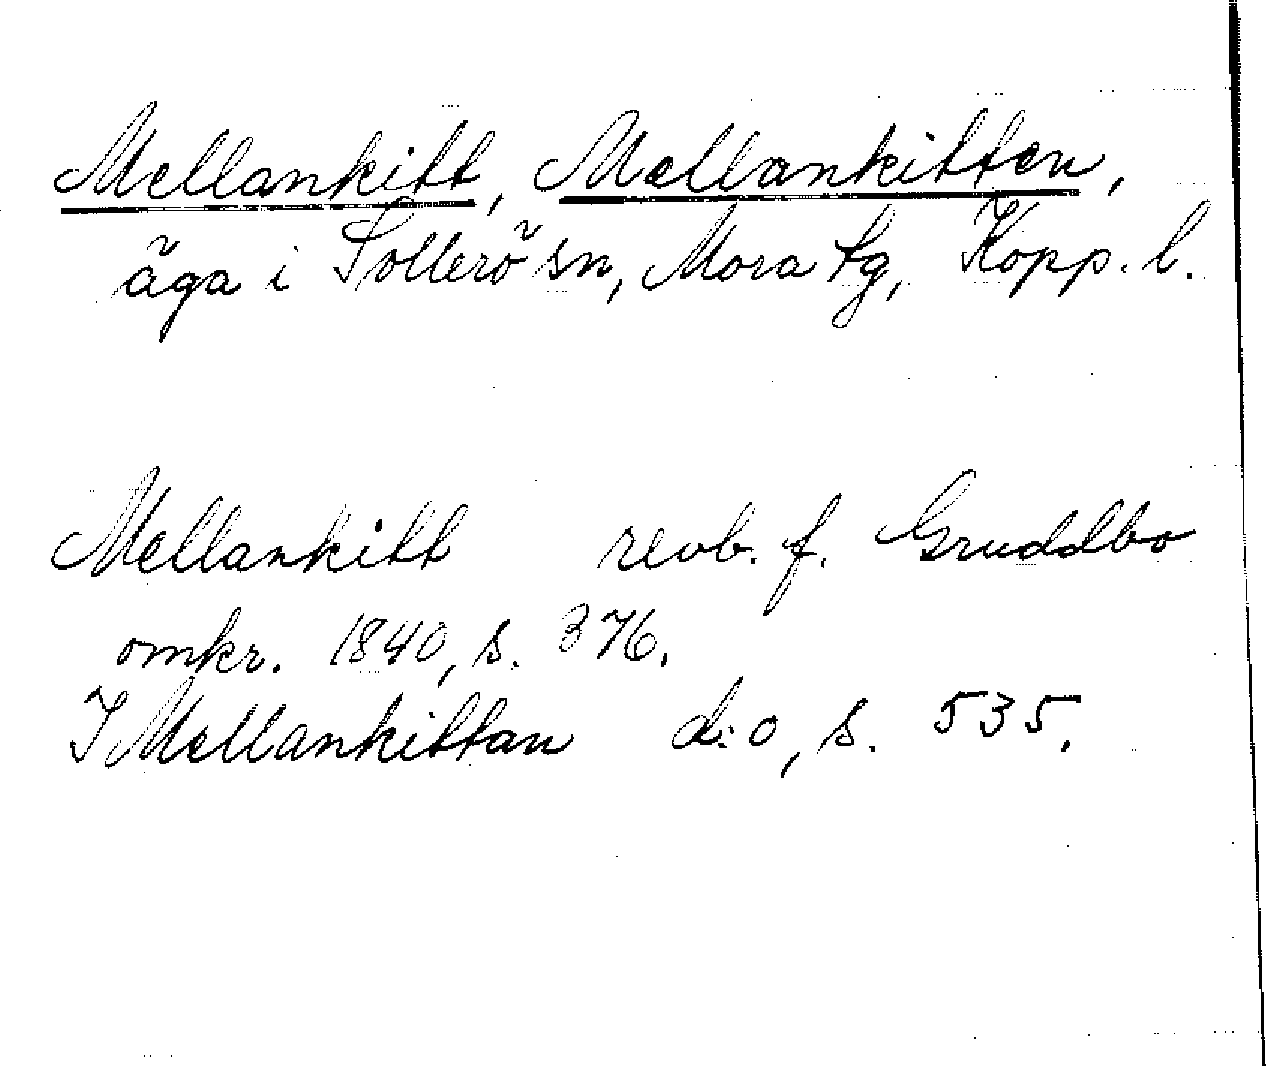 Mellankitt, Mellankitten,
äga i Sollerö sn, Mora tg, Kopp. l.
Mellankitt revb. f. Gruddbo
omkr. 1840, s. 376.
I Mellankittan d:o, s. 535.